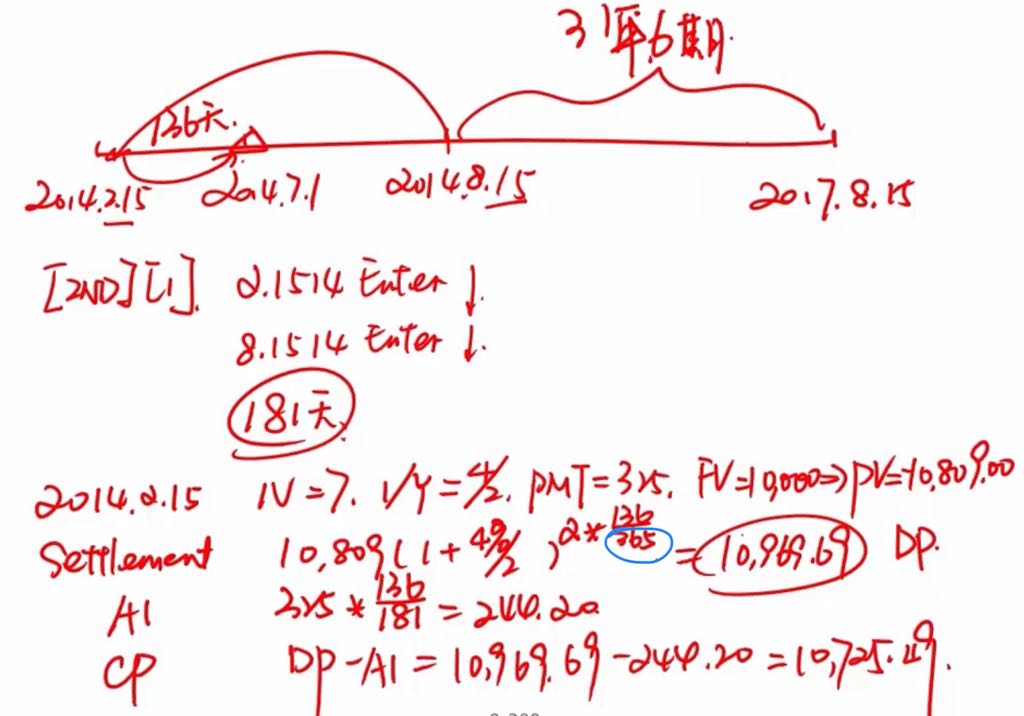 3年.6期.
136天.
2014.2.15 2014.7.1 2014.8.15 2017.8.15
[2ND][1]. 2.1514 Enter ↓.
8.1514 Enter ↓.
181天.
2014.2.15 N=7. I/Y=4/2. PMT=325. FV=10,000⇒PV=-10,809.00
Settlement 10,809(1+4%/2)^2*136/365=10,969.69 DP.
AI 325*136/181=244.20
CP DP-AI=10,969.69-244.20=10,725.49.